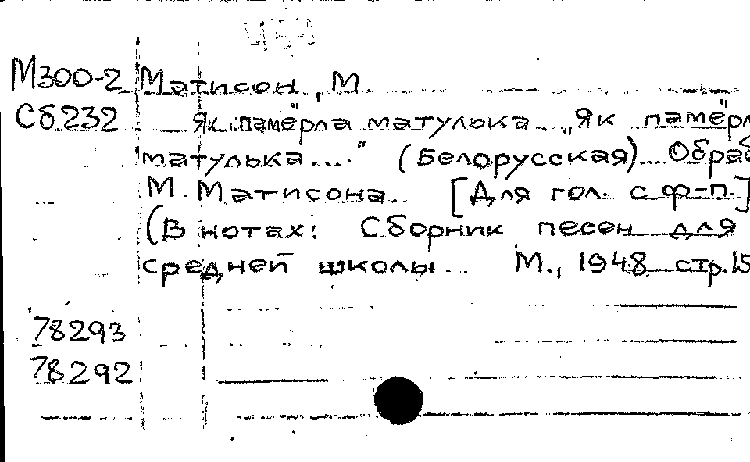 М300-2 Матисон, М.
Сб232 Як памёрла матулька „Як памёрл
матулька...." (Белорусская) Обраб
М. Матисона [Для гол. с ф-п.]
(В нотах: Сборник песен для
средней школы М., 1948 стр.15
78293
78292